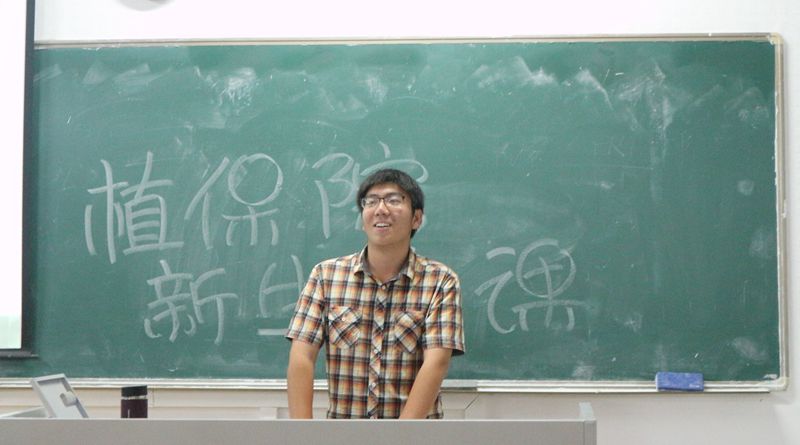 植保院
新生 课